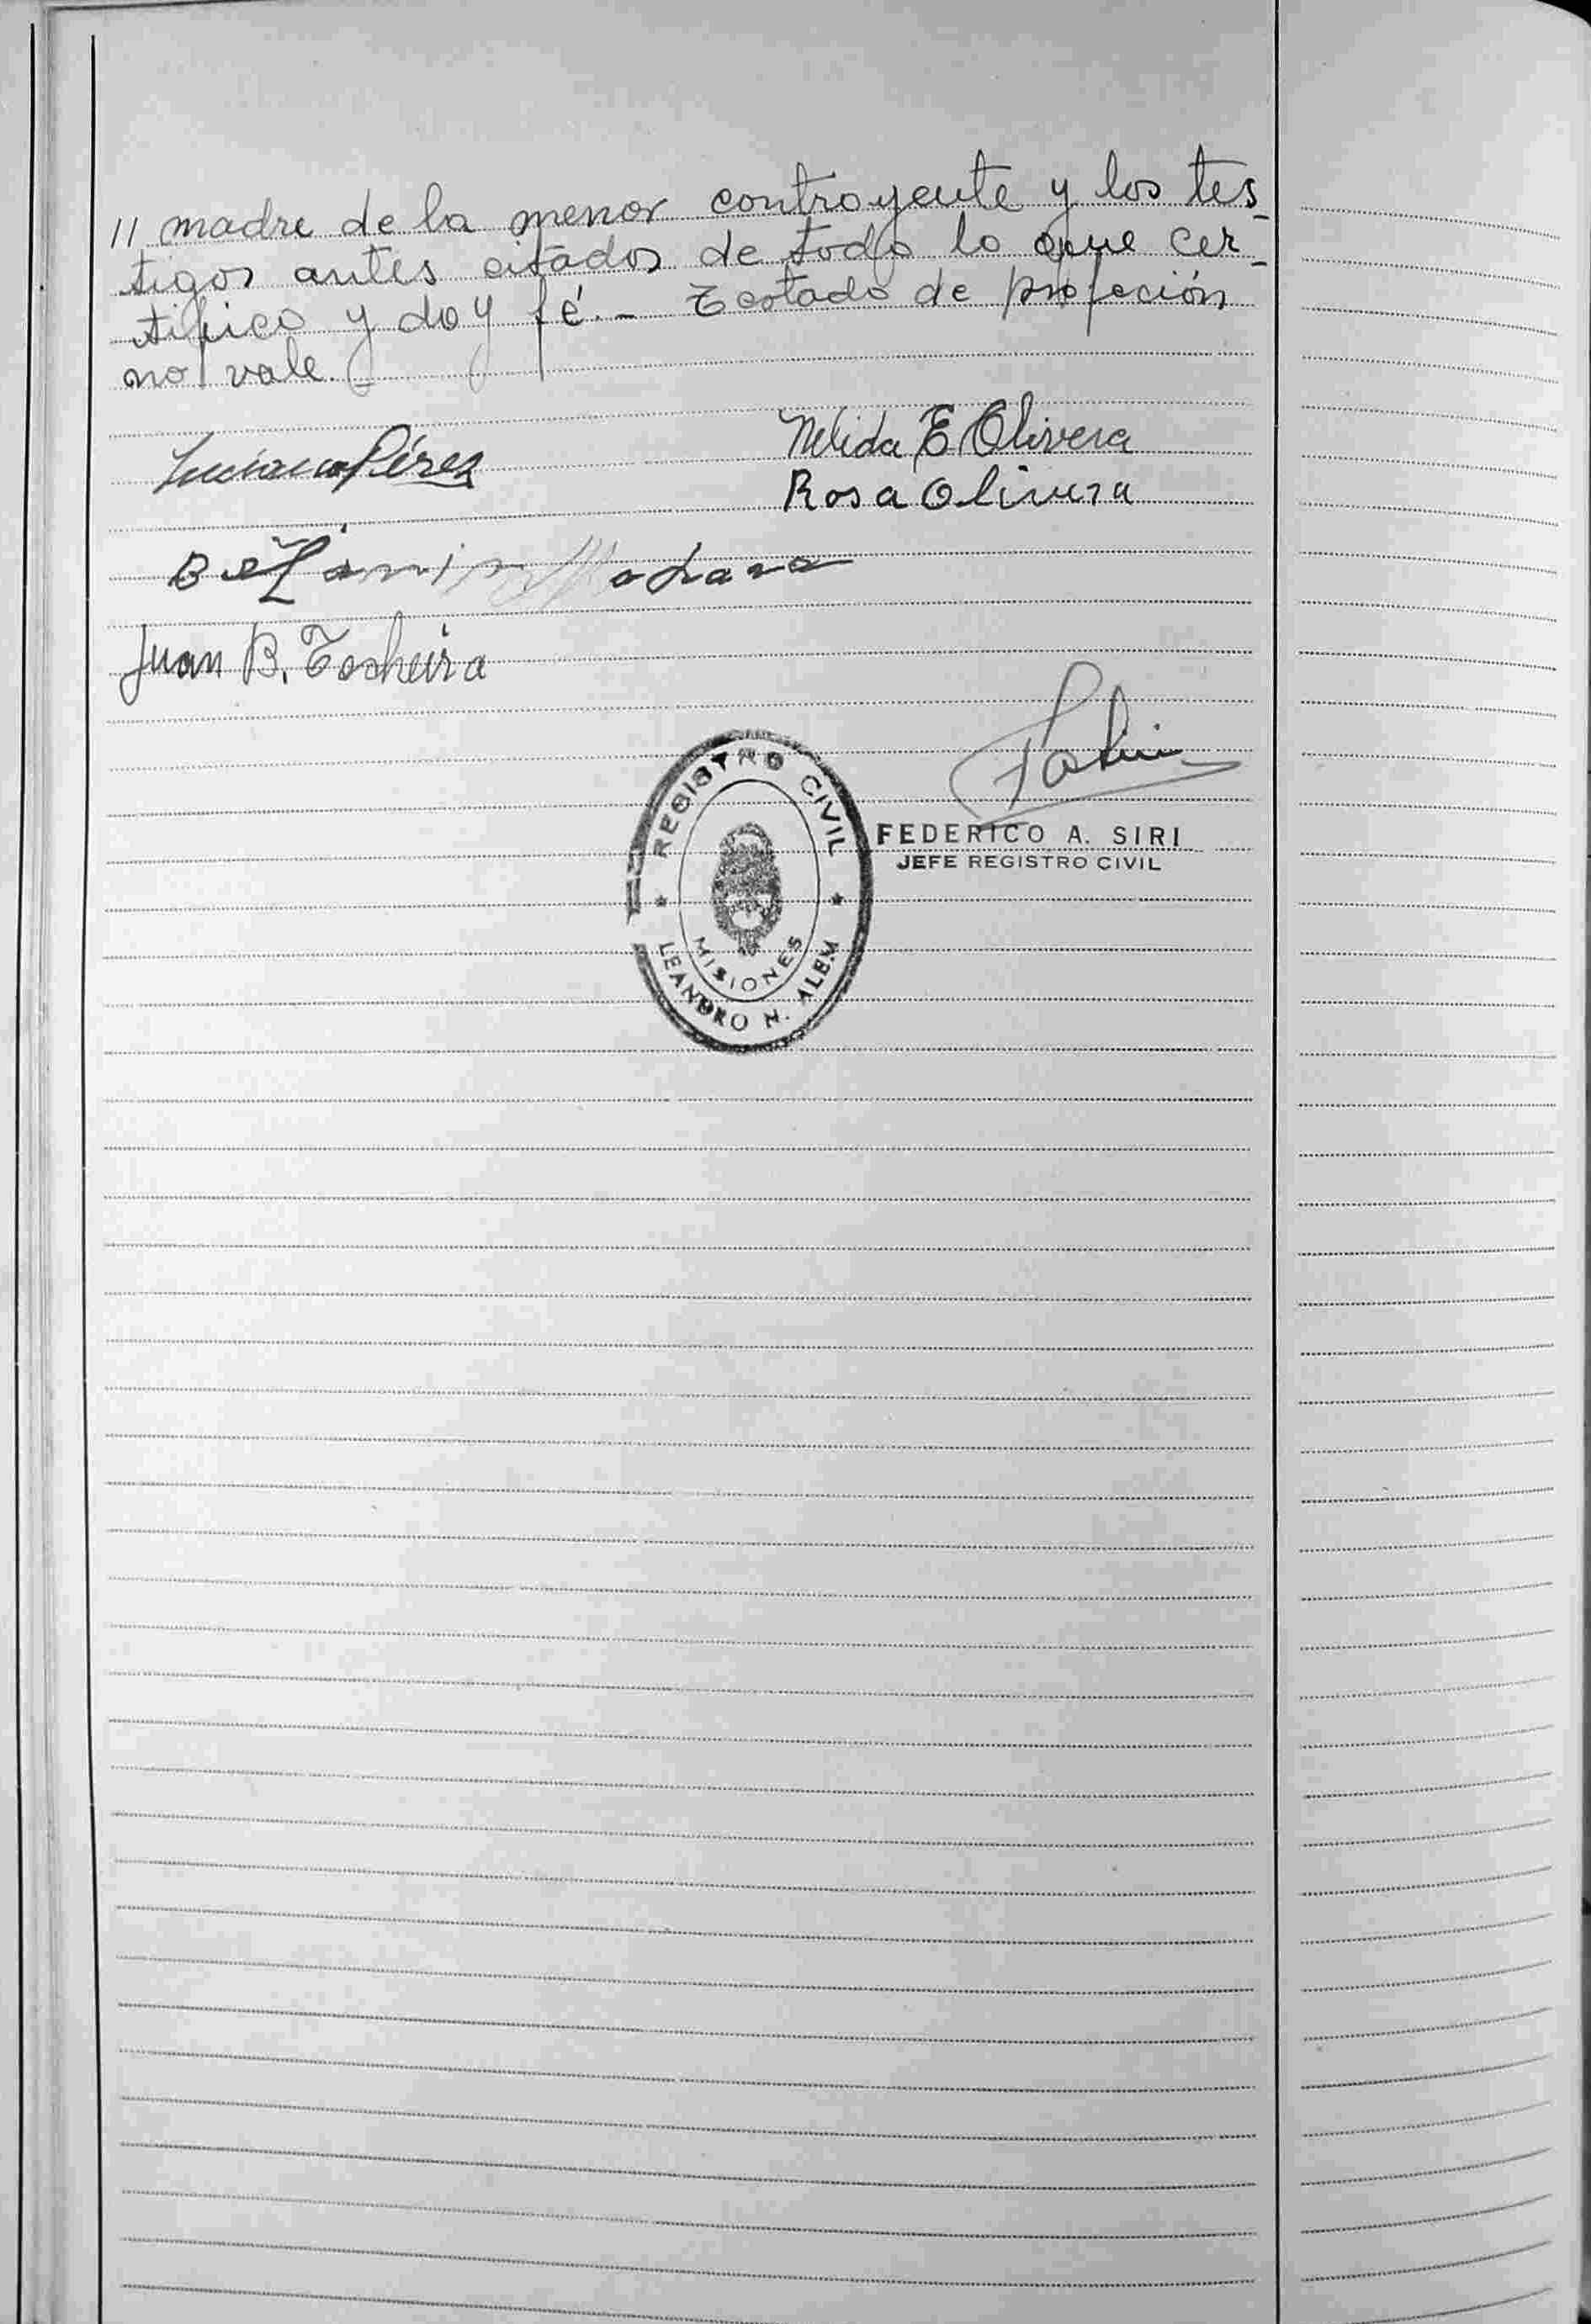 // madre de la menor contrayente y los tes_
tigos antes citados de todo lo que cer_
tifico y doy fé._ Testado de profeción
no vale._
Luciano Pérez
Nelida E. Olivera
Rosa Olivera
Juan B. Techeira
REGISTRO CIVIL
MISIONES
LEANDRO N. ALEM
FEDERICO A. SIRI
JEFE REGISTRO CIVIL